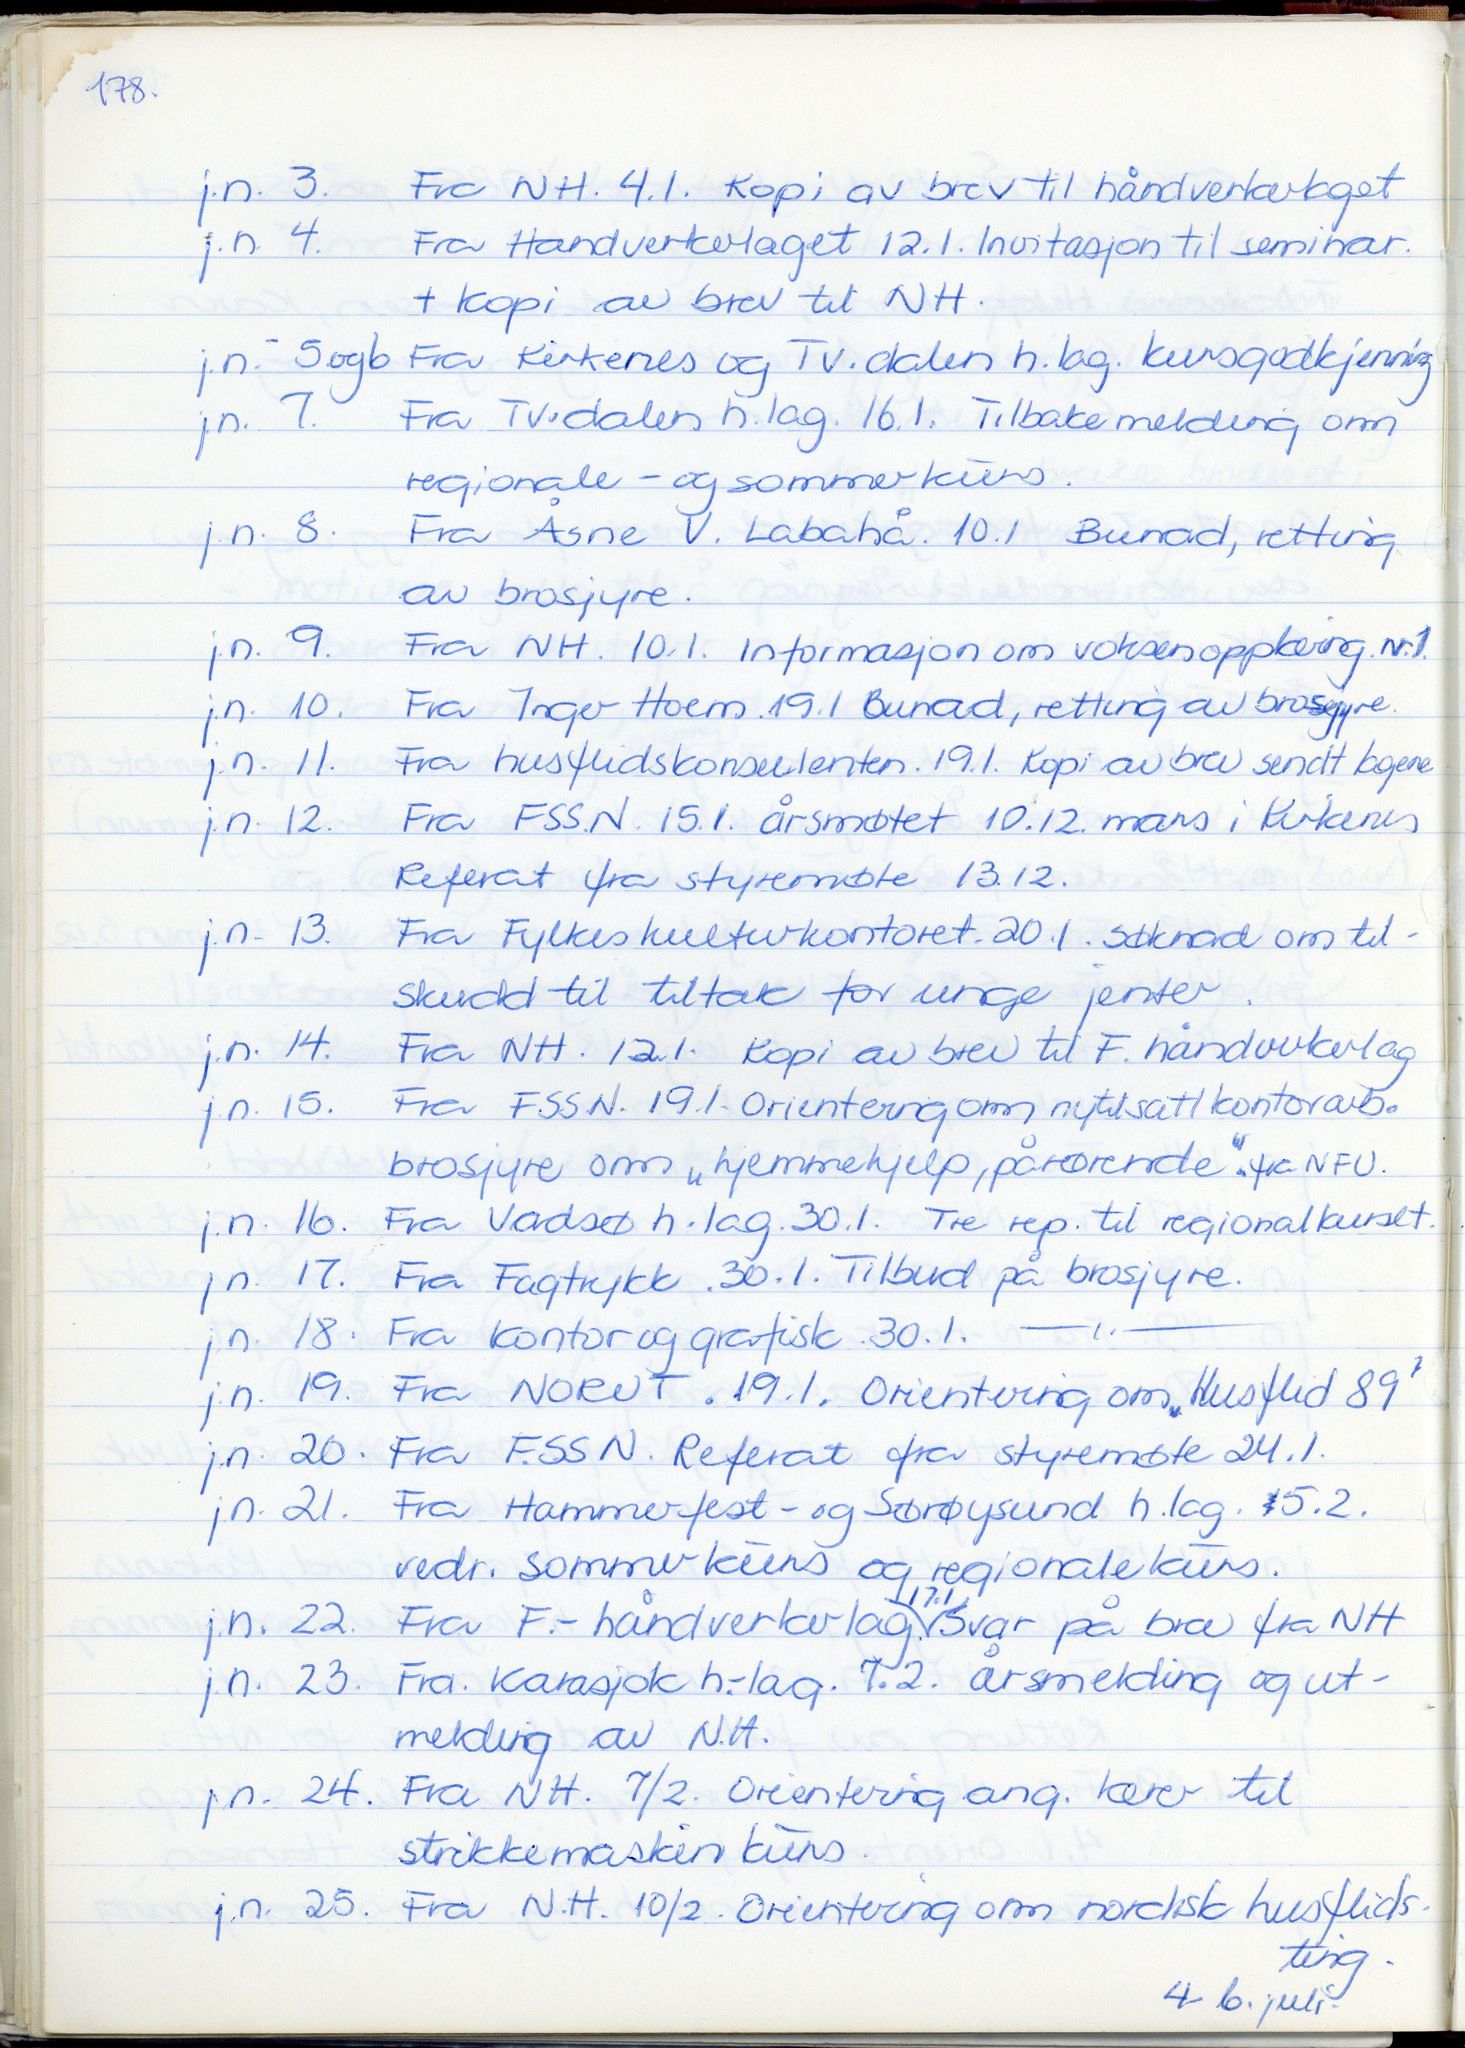 178.
j.n. 3. Fra NH. 4.1. Kopi av brev til håndverkerlaget
j.n. 4. Fra Handverkerlaget 12.1. Invitasjon til seminar.
+ kopi av brev til NH.
j.n. 5 og 6 Fra Kirkenes og TV.dalen h.lag. kursgodkjenning
j.n. 7. Fra TV.dalen h.lag. 16.1. Tilbakemelding om
regionale- og sommerkurs.
j.n. 8. Fra Åsne V. Labahå. 10.1 Bunad, retting
av brosjyre.
j.n. 9. Fra NH. 10.1. Informasjon om voksenopplæring. Nr.1.
j.n. 10. Fra Inger Hoem. 19.1 Bunad, retting av brosjyre.
j.n. 11. Fra husflidskonsulenten. 19.1. Kopi av brev sendt lagene
j.n. 12. Fra FSS.N. 15.1. årsmøtet 10.12. mars i Kirkenes
Referat fra styremøte 13.12.
j.n. 13. Fra Fylkeskulturkontoret. 20.1. Søknad om til-
skudd til tiltak for unge jenter.
j.n. 14. Fra NH. 12.1. Kopi av brev til F. håndverkerlag
j.n. 15. Fra F.S.S.N. 19.1. Orientering om nytilsatt kontorarb.
brosjyre om „hjemmehjelp, pårørende". fra NFU.
j.n. 16. Fra Vadsø h.lag. 30.1. Tre rep. til regionalkurset.
j.n. 17. Fra Fagtrykk. 30.1. Tilbud på brosjyre.
j.n. 18. Fra Kontor og grafisk. 30.1. —〃—
j.n. 19. Fra NORUT. 19.1. Orientering om „Husflid 89"
j.n. 20. Fra F.SSN. Referat fra styremøte 24.1.
j.n. 21. Fra Hammerfest- og Sørøysund h.lag. 5.2.
vedr. sommerkurs og regionalekurs.
j.n. 22. Fra F.- håndverkerlag. 17.1. Svar på brev fra NH
j.n. 23. Fra. Karasjok h.-lag. 7.2. årsmelding og ut-
melding av N.H.
j.n. 24. Fra NH. 7/2. Orientering ang. lærer til
strikkemaskin kurs.
j.n. 25. Fra N.H. 10/2. Orientering om nordisk husflids-
ting.
4-6. juli.